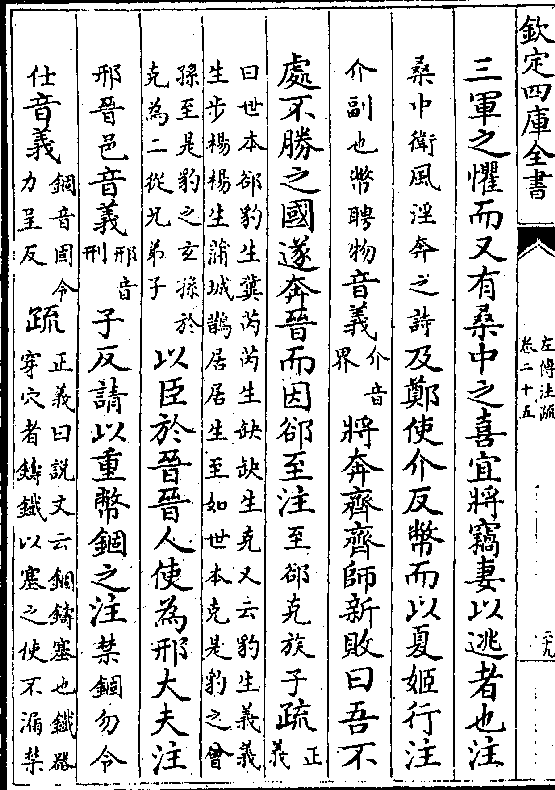 欽定四庫全書
左傳注疏
卷二十五
二十九
三軍之懼而又有桑中之喜宜將竊妻以逃者也注
桑中衛風淫奔之詩及鄭使介反幣而以夏姬行注
介副也幣聘物音義介音界將奔齊齊師新敗曰吾不
處不勝之國遂奔晉而因郤至注至郤克族子疏正義
曰世本郤豹生冀芮芮生缺缺生克又云豹生義義
生步楊楊生蒲城鵲居居生至如世本克是豹之曾
孫至是豹之玄孫於
克為二從兄弟子以臣於晉晉人使為邢大夫注
邢晉邑音義邢音刑子反請以重幣錮之注禁錮勿令
仕音義錮音固令力呈反疏正義曰說文云錮鑄塞也鐵器
穿穴者鑄鐵以塞之使不漏禁